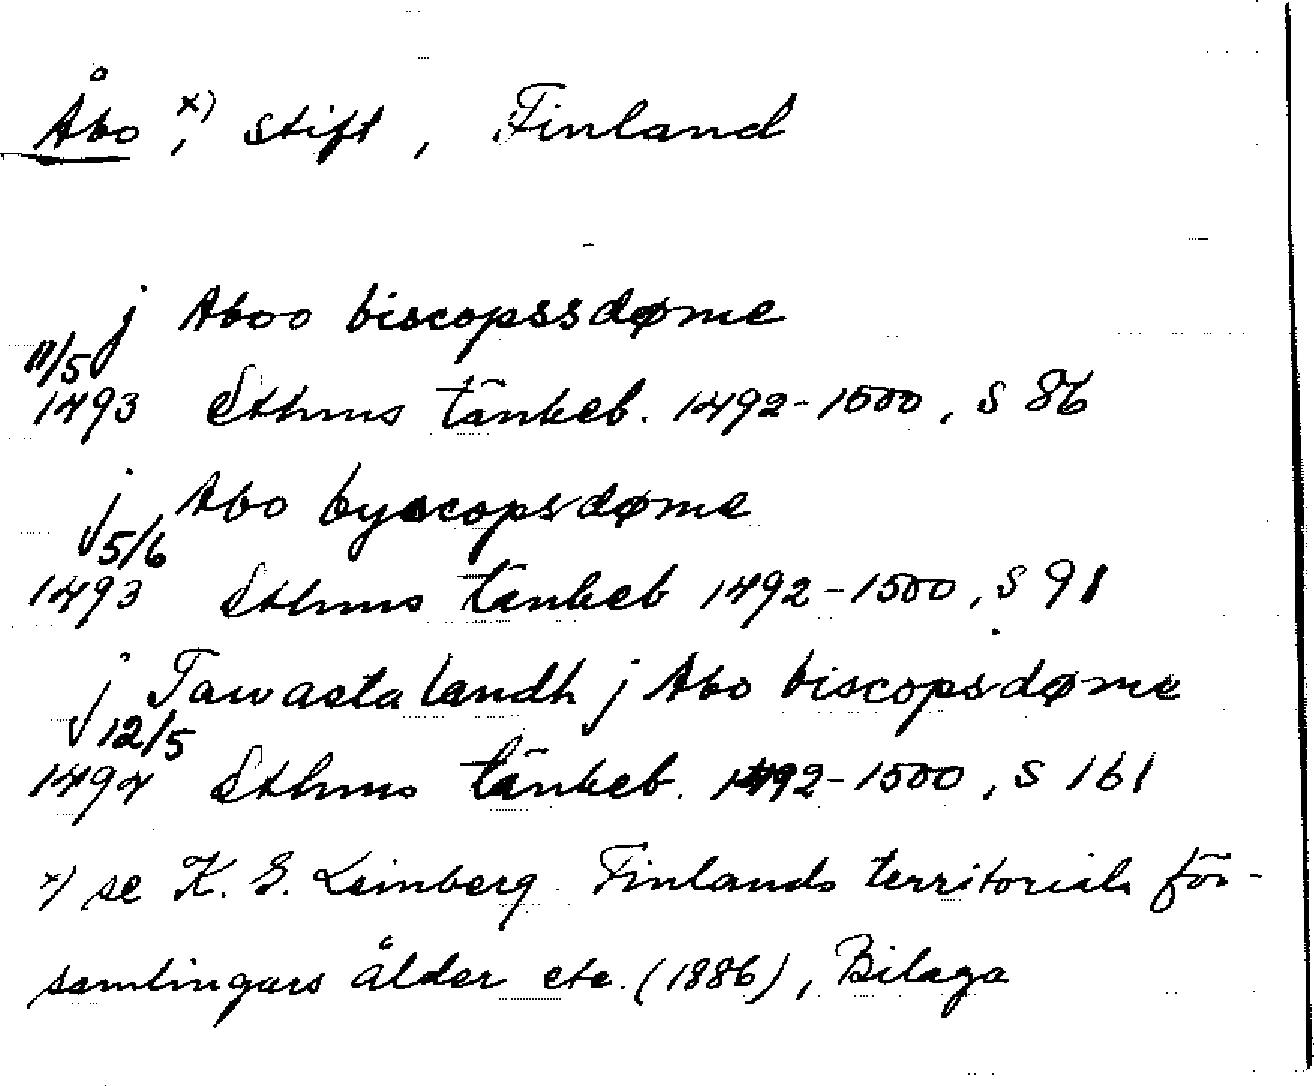 Åbo x), stift, Finland
j Aboo biscopssdøme
11/5
1493 Sthms tänkeb. 1492-1500, s 86
j Abo byscopsdøme
5/6
1493 Sthms tänkeb 1492-1500, s 91
j Tawastalandh j Abo biscopsdøme
12/5
1494 Sthms tänkeb. 1492-1500, s 161
x) se K. G. Leinberg Finlands territoriala för-
samlingars ålder etc. (1886), Bilaga